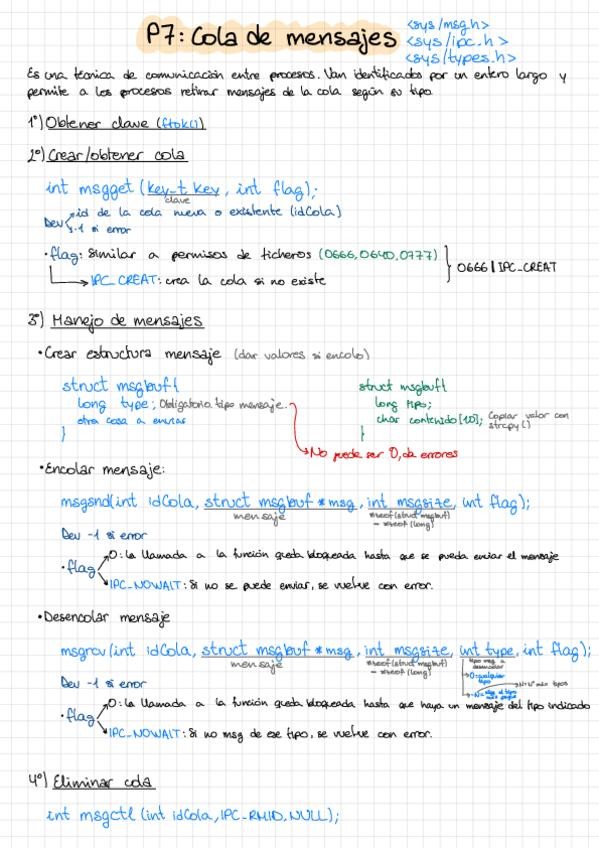 P7: Cola de mensajes
<sys/msg.h>
<sys/ipc.h>
<sys/types.h>
Es una técnica de comunicación entre procesos. Van identificados por un entero largo y
permite a los procesos retirar mensajes de la cola según su tipo
1º) Obtener clave (ftok())
2º) Crear/obtener cola
int msgget (key_t key, int flag);
clave
Dev id de la cola nueva o existente (idCola)
-1 si error
·flag: Similar a permisos de ficheros (0666,0640,0777)
0666 | IPC_CREAT
IPC_CREAT: crea la cola si no existe
3º) Manejo de mensajes
·Crear estructura mensaje (dar valores si encolo)
struct msgbuf{
long type; Obligatorio tipo mensaje.
otra cosa a enviar
}
struct msgbuf{
long tipo;
char contenido[10]; Copiar valor con
strcpy()
}
No puede ser 0, da errores
·Encolar mensaje:
msgsnd(int idCola, struct msgbuf *msg, int msgsize, int flag);
mensaje
sizeof(struct msgbuf)
- sizeof(long)
Dev -1 si error
·flag
0: la llamada a la función queda bloqueada hasta que se pueda enviar el mensaje
IPC_NOWAIT: Si no se puede enviar, se vuelve con error.
·Desencolar mensaje
msgrcv(int idCola, struct msgbuf *msg, int msgsize, int type, int flag);
mensaje
sizeof(struct msgbuf)
- sizeof(long)
tipo msg a
desencolar
0=cualquier
tipo
Dev -1 si error
·flag
0: la llamada a la función queda bloqueada hasta que haya un mensaje del tipo indicado
IPC_NOWAIT: Si no msg de ese tipo, se vuelve con error.
4º) Eliminar cola
int msgctl (int idCola, IPC_RMID, NULL);